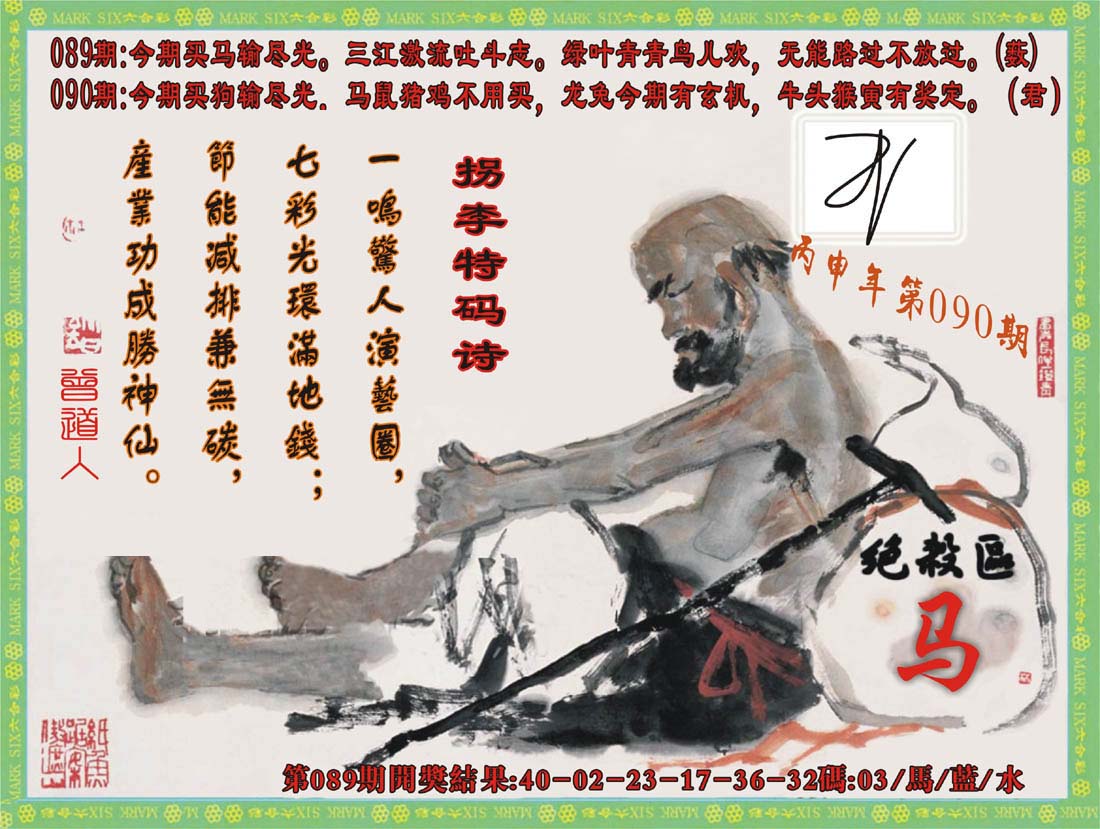 089期:今期买马输尽光。三江激流吐斗志。绿叶青青鸟儿欢,无能路过不放过。(薮)
090期:今期买狗输尽光.马鼠猪鸡不用买,龙兔今期有玄机,牛头猴寅有奖定。(君)
拐李特码诗
一鳴驚人演藝圈,
七彩光環滿地錢;
節能减排兼無碳,
産業功成勝神仙。
曾道人
丙申年第090期
绝殺區
马
第089期開獎結果:40-02-23-17-36-32碼:03/馬/藍/水
MARK SIX六合彩